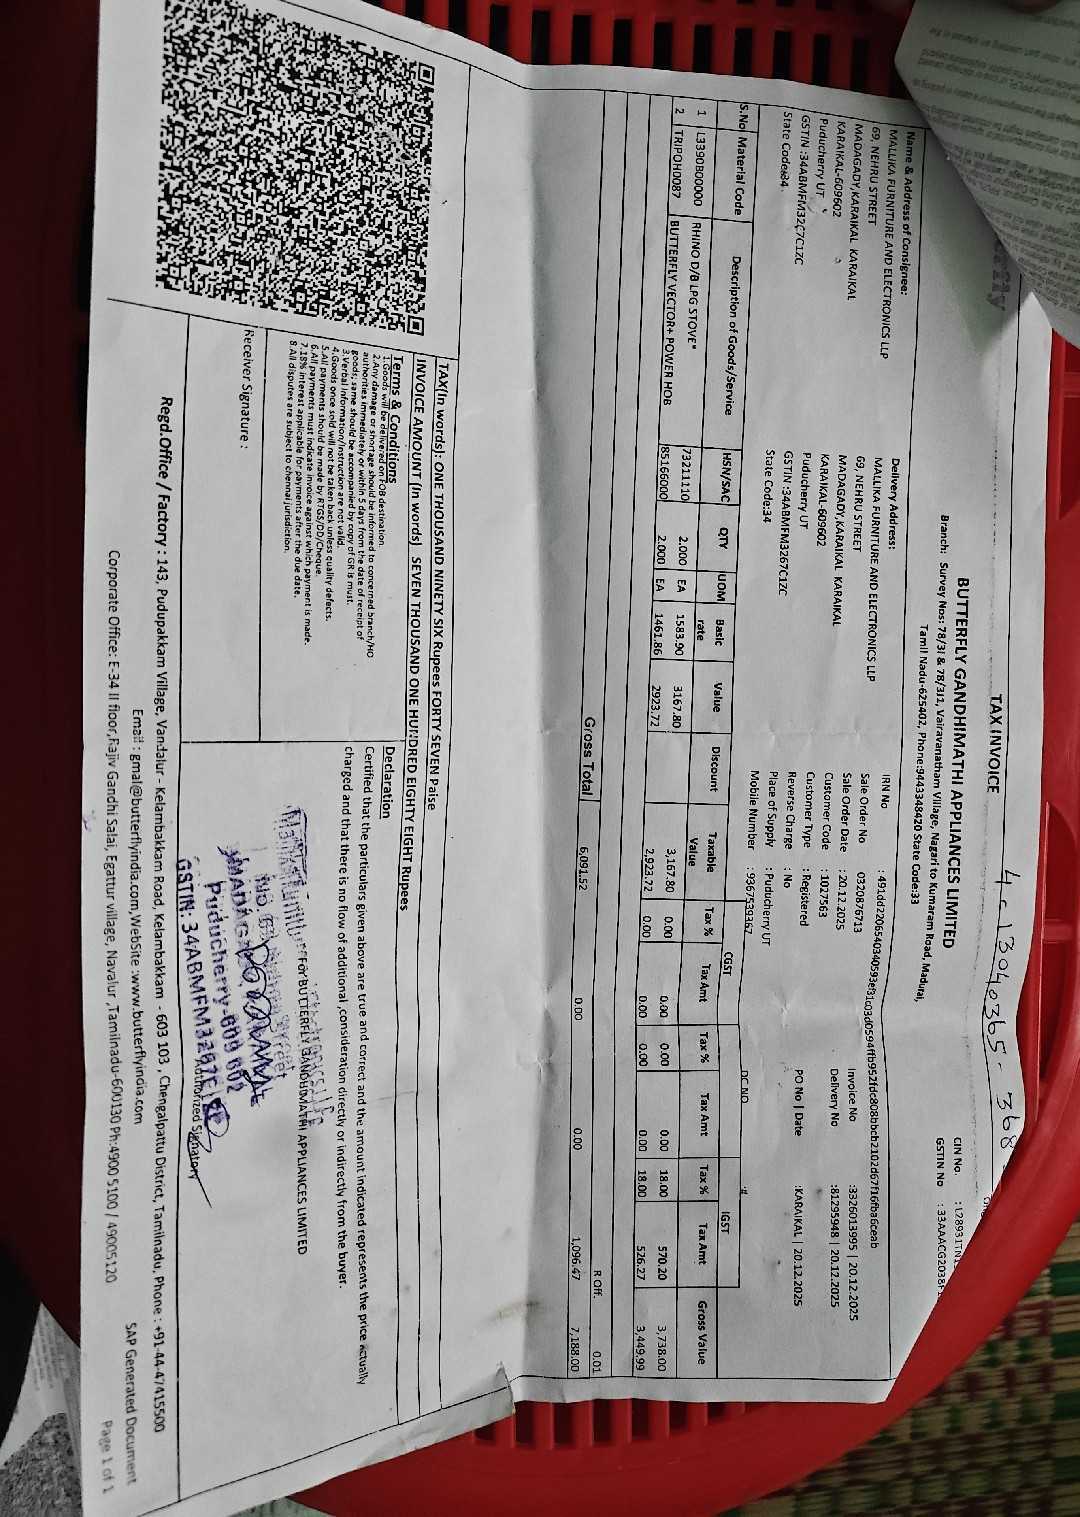 4-13040365- 368
TAX INVOICE
BUTTERFLY GANDHIMATHI APPLIANCES LIMITED
Branch: Survey Nos: 78/3I & 78/3J1, Vairavanatham Village, Nagari to Kumaram Road, Madurai,
Tamil Nadu-625402, Phone:9443348420 State Code:33
CIN No. :L28931TN1
GSTIN No :33AAACG2038F1
Name & Address of Consignee:
MALLIKA FURNITURE AND ELECTRONICS LLP
69, NEHRU STREET
MADAGADY,KARAIKAL KARAIKAL
KARAIKAL-609602
Puducherry UT
GSTIN :34ABMFM3267C1ZC
State Code:34
Delivery Address:
MALLIKA FURNITURE AND ELECTRONICS LLP
69, NEHRU STREET
MADAGADY,KARAIKAL KARAIKAL
KARAIKAL-609602
Puducherry UT
GSTIN :34ABMFM3267C1ZC
State Code:34
IRN No
Sale Order No 0320876713
Sale Order Date :20.12.2025
Customer Code :1027563
Customer Type : Registered
Reverse Charge : No
Place of Supply : Puducherry UT
Mobile Number : 9367539367
Invoice No :3326013995 | 20.12.2025
Delivery No :81295948 | 20.12.2025
PO No | Date :KARAIKAL | 20.12.2025
DC NO
S.No Material Code Description of Goods/Service HSN/SAC QTY UOM Basic rate Value Discount Taxable Value CGST Tax % Tax Amt Tax % Tax Amt IGST Tax % Tax Amt Gross Value
1 L3390B00000 RHINO D/B LPG STOVE" 73211110 2.000 EA 1583.90 3167.80 3,167.80 0.00 0.00 0.00 0.00 18.00 570.20 3,738.00
2 TRIPOH0087 BUTTERFLY VECTOR+ POWER HOB 85166000 2.000 EA 1461.86 2923.72 2,923.72 0.00 0.00 0.00 0.00 18.00 526.27 3,449.99
R Off. 0.01
Gross Total 6,091.52 0.00 0.00 1,096.47 7,188.00
TAX(In words): ONE THOUSAND NINETY SIX Rupees FORTY SEVEN Paise
INVOICE AMOUNT (In words) SEVEN THOUSAND ONE HUNDRED EIGHTY EIGHT Rupees
Terms & Conditions
1.Goods will be delivered on FOB destination.
2.Any damage or shortage should be informed to concerned branch/HO
authorities immediately or within 5 days from the date of receipt of
goods; same should be accompanied by copy of GR is must.
3.Verbal information/Instruction are not valid.
4.Goods once sold will not be taken back unless quality defects.
5.All payments should be made by RTGS/DD/Cheque
6.All payments must indicate invoice against which payment is made.
7.18% interest applicable for payments after the due date.
8 All disputes are subject to chennai jurisdiction.
Receiver Signature :
Declaration
Certified that the particulars given above are true and correct and the amount indicated represents the price actually
charged and that there is no flow of additional ,consideration directly or indirectly from the buyer.
FOR BUTTERFLY GANDHIMATHI APPLIANCES LIMITED
Puducherry-609 602
GSTIN: 34ABMFM3267C
Authorized Signatory
Regd.Office / Factory : 143, Pudupakkam Village, Vandalur - Kelambakkam Road, Kelambakkam - 603 103 , Chengalpattu District, Tamilnadu, Phone : +91-44-47415500
Email : gmal@butterflyindia.com,WebSite :www.butterflyindia.com
Corporate Office: E-34 II floor,Rajiv Gandhi Salai, Egattur village, Navalur ,Tamilnadu-600130 Ph:4900 5100 / 49005120
SAP Generated Document
Page 1 of 1